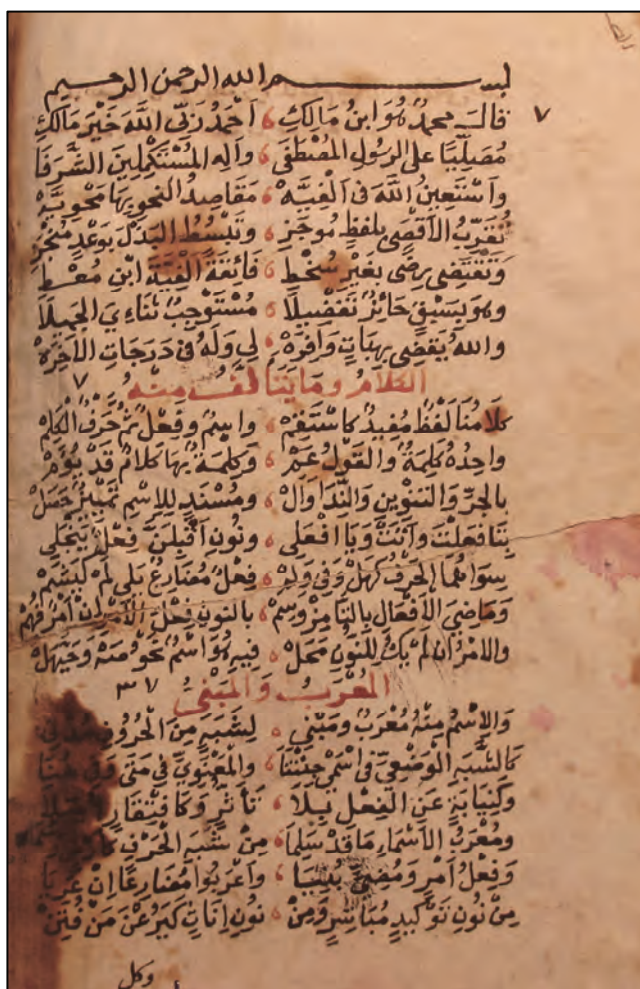 بسم الله الرحمن الرحيم
قال محمد هو ابن مالك احمد ربي الله خير مالك
مصليا على الرسول المصطفى وآله المستكملين الشرفا
واستعين الله في الفيه مقاصد النحو بها محويه
تقرب الاقصى بلفظ موجز وتبسط البذل بوعد منجز
وتقتضي رضى بغير سخط فائقة الفية ابن معط
وهو بسبق حائز تفضيلا مستوجب ثنائي الجميلا
والله يقضي بهبات وافره لي وله في درجات الاخره
الكلام وما يتألف منه
كلامنا لفظ مفيد كاستقم واسم وفعل ثم حرف الكلم
واحده كلمة والقول عم وكلمة بها كلام قد يؤم
بالجر والتنوين والندا وال ومسند للاسم تمييز حصل
بتا فعلت وأتت ويا افعلي ونون اقبلن فعل ينجلي
سواهما الحرف كهل وفي ولم فعل مضارع يلي لم كيشم
وماضي الافعال بالتا مز وسم بالنون فعل الامر ان امر فهم
والامر ان لم يك للنون محل فيه هو اسم نحو صه وحيهل
المعرب والمبني
والاسم منه معرب ومبني لشبه من الحروف مدني
كالشبه الوضعي في اسمي جئتنا والمعنوي في متى وفي هنا
وكنيابة عن الفعل بلا تأثر وكافتقار اصلا
ومعرب الاسماء ما قد سلما من شبه الحرف
وفعل امر ومضي بنيا واعربوا مضارعا ان عريا
من نون توكيد مباشر ومن نون اناث كيرعن من فتن
وكل